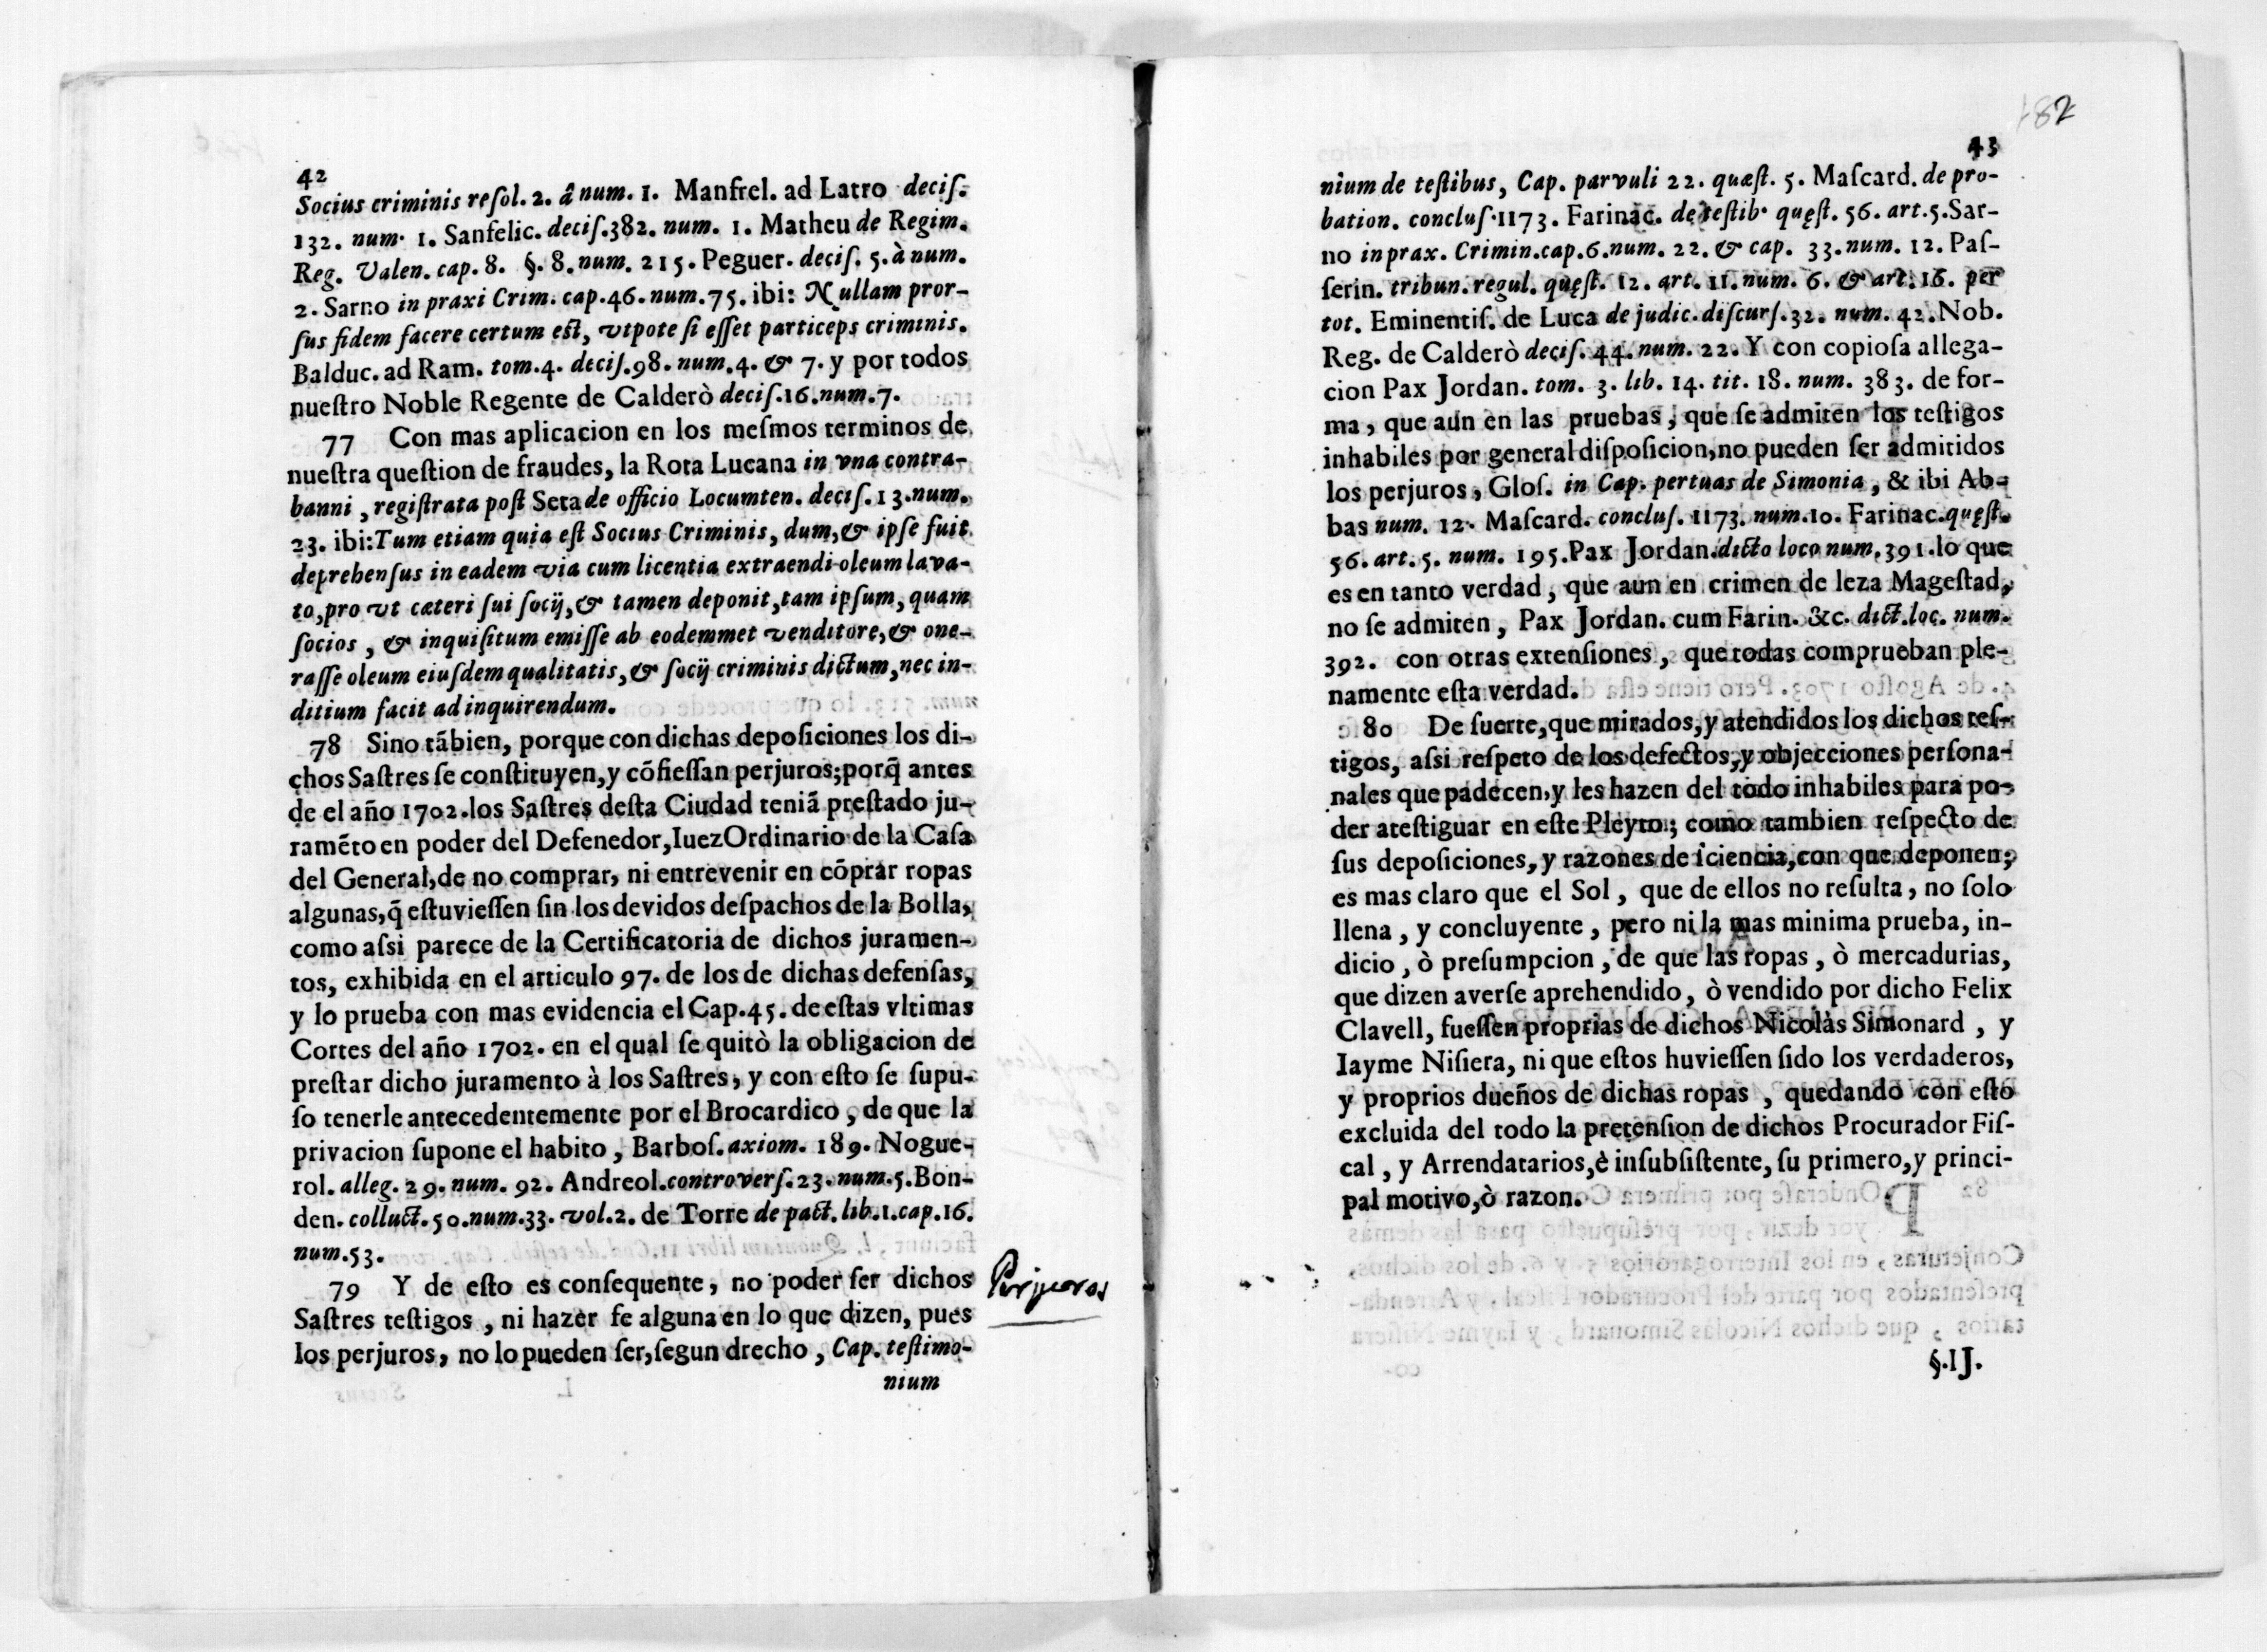 42
Socius criminis resol. 2. â num. 1. Manfrel. ad Latro decis.
132. num. 1. Sanfelic. decis.382. num. 1. Matheu de Regim.
Reg. Valen. cap. 8. §. 8. num. 215. Peguer. decis. 5. à num.
2. Sarno in praxi Crim. cap.46. num.75. ibi: Nullam pror-
ſus fidem facere certum eſt, vtpote ſi eſſet particeps criminis.
Balduc. ad Ram. tom.4. deciſ.98. num.4. & 7. y por todos
nueſtro Noble Regente de Calderò deciſ.16.num.7.
77 Con mas aplicacion en los meſmos terminos de
nueſtra queſtion de fraudes, la Rota Lucana in vna contra-
banni, regiſtrata poſt Seta de officio Locumten. deciſ. 13.num.
23. ibi:Tum etiam quia eſt Socius Criminis, dum,& ipſe fuit
deprehenſus in eadem via cum licentia extraendi oleum lava-
to,pro vt cæteri ſui ſocij,& tamen deponit,tam ipſum, quam
ſocios, & inquiſitum emiſſe ab eodemmet venditore,& one-
raſſe oleum eiuſdem qualitatis,& ſocij criminis dictum,nec in-
ditium facit ad inquirendum.
78 Sino tãbien, porque con dichas depoſiciones los di-
chos Saſtres ſe conſtituyen,y cõfieſſan perjuros;porq̃ antes
de el año 1702.los Saſtres deſta Ciudad teniã preſtado ju-
ramẽto en poder del Defenedor,Iuez Ordinario de la Caſa
del General,de no comprar, ni entrevenir en cõprar ropas
algunas,q̃ eſtuvieſſen ſin los devidos deſpachos de la Bolla,
como aſsi parece de la Certificatoria de dichos juramen-
tos, exhibida en el articulo 97. de los de dichas defenſas,
y lo prueba con mas evidencia el Cap.45. de eſtas vltimas
Cortes del año 1702. en el qual ſe quitò la obligacion de
preſtar dicho juramento à los Saſtres, y con eſto ſe ſupu-
ſo tenerle antecedentemente por el Brocardico, de que la
privacion ſupone el habito, Barboſ. axiom. 189. Nogue-
rol. alleg. 29. num. 92. Andreol.controverſ.23.num.5.Bon-
den. colluct.50.num.33. vol.2. de Torre de pact. lib.1.cap.16.
num.53.
79 Y de eſto es conſequente, no poder ſer dichos
Saſtres teſtigos, ni hazer fe alguna en lo que dizen, pues
los perjuros, no lo pueden ſer,ſegun drecho, Cap. teſtimo-
nium
Perjuros
182
43
nium de teſtibus, Cap. parvuli 22. quæſt. 5. Maſcard. de pro-
bation. concluſ.1173. Farinac. de teſtib. quęſt. 56. art.5.Sar-
no in prax. Crimin.cap.6.num. 22. & cap. 33.num. 12. Paſ-
ſerin. tribun. regul. quęſt. 12. art. 11. num. 6. & art. 16. per
tot. Eminentiſ. de Luca de judic. diſcurſ.32. num. 42. Nob.
Reg. de Calderò deciſ. 44. num. 22. Y con copioſa allega-
cion Pax Jordan. tom. 3. lib. 14. tit. 18. num. 383. de for-
ma, que aun en las pruebas, que ſe admiten los teſtigos
inhabiles por general diſpoſicion,no pueden ſer admitidos
los perjuros, Gloſ. in Cap. pertuas de Simonia, & ibi Ab-
bas num. 12. Maſcard. concluſ. 1173. num.10. Farinac.quęſt.
56. art. 5. num. 195.Pax Jordan.dicto loco num.391.lo que
es en tanto verdad, que aun en crimen de leza Mageſtad,
no ſe admiten, Pax Jordan. cum Farin. &c. dict.loc. num.
392. con otras extenſiones, que todas comprueban ple-
namente eſta verdad.
80 De ſuerte,que mirados,y atendidos los dichos teſ-
tigos, aſsi reſpeto de los defectos,y objecciones perſona-
nales que padecen,y les hazen del todo inhabiles para po-
der ateſtiguar en eſte Pleyto; como tambien reſpecto de
ſus depoſiciones, y razones de ſciencia,con que deponen;
es mas claro que el Sol, que de ellos no reſulta, no ſolo
llena, y concluyente, pero ni la mas minima prueba, in-
dicio, ò preſumpcion, de que las ropas, ò mercadurias,
que dizen averſe aprehendido, ò vendido por dicho Felix
Clavell, fueſſen proprias de dichos Nicolàs Simonard, y
Iayme Niſiera, ni que eſtos huvieſſen ſido los verdaderos,
y proprios dueños de dichas ropas, quedando con eſto
excluida del todo la pretenſion de dichos Procurador Fiſ-
cal, y Arrendatarios,è inſubſiſtente, ſu primero,y princi-
pal motivo,ò razon.
§.IJ.